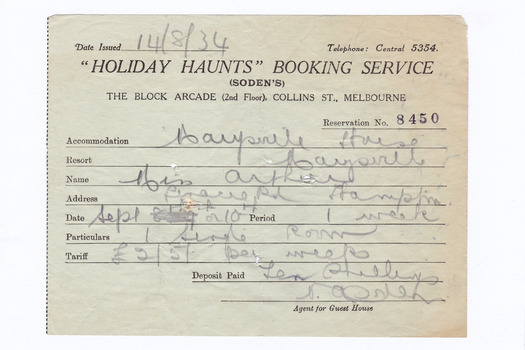 Date Issued 14/8/34 Telephone: Central 5354.
"HOLIDAY HAUNTS" BOOKING SERVICE
(SODEN'S)
THE BLOCK ARCADE (2nd Floor), COLLINS ST., MELBOURNE
Reservation No. 8450
Accommodation Marysville House
Resort Marysville
Name Miss Arthur
Address Hampton
Date Sept or 10th Period 1 week
Particulars 1 Single Room
Tariff £2/5/ per week
Deposit Paid Ten Shillings
Soden
Agent for Guest House